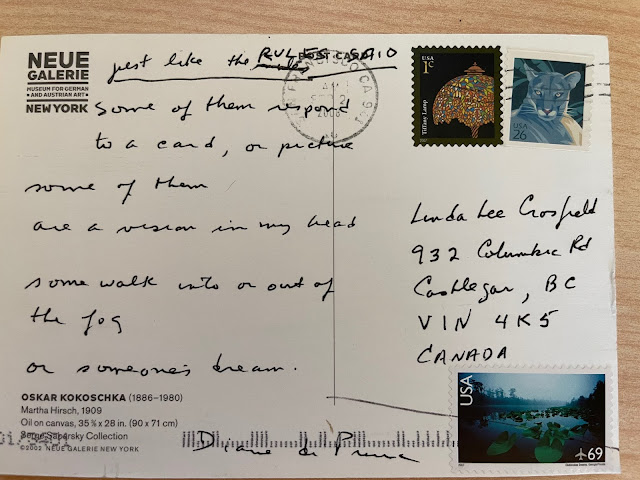 NEUE
GALERIE
MUSEUM FOR GERMAN
AND AUSTRIAN ART
NEW YORK
POST CARD
just like the rules RULES SAID
Some of them respond
to a card, or picture
some of them
are a vision in my head
some walk into or out of
the fog
or someone's dream.
OSKAR KOKOSCHKA (1886–1980)
Martha Hirsch, 1909
Oil on canvas, 35 ⅝ x 28 in. (90 x 71 cm)
Serge Sabarsky Collection
©2002 NEUE GALERIE NEW YORK
Diane di Prima
CA 941
2008
USA
1c
Tiffany Lamp
USA
26
Linda Lee Crosfield
932 Columbia Rd
Castlegar, BC
V1N 4K5
CANADA
USA
69